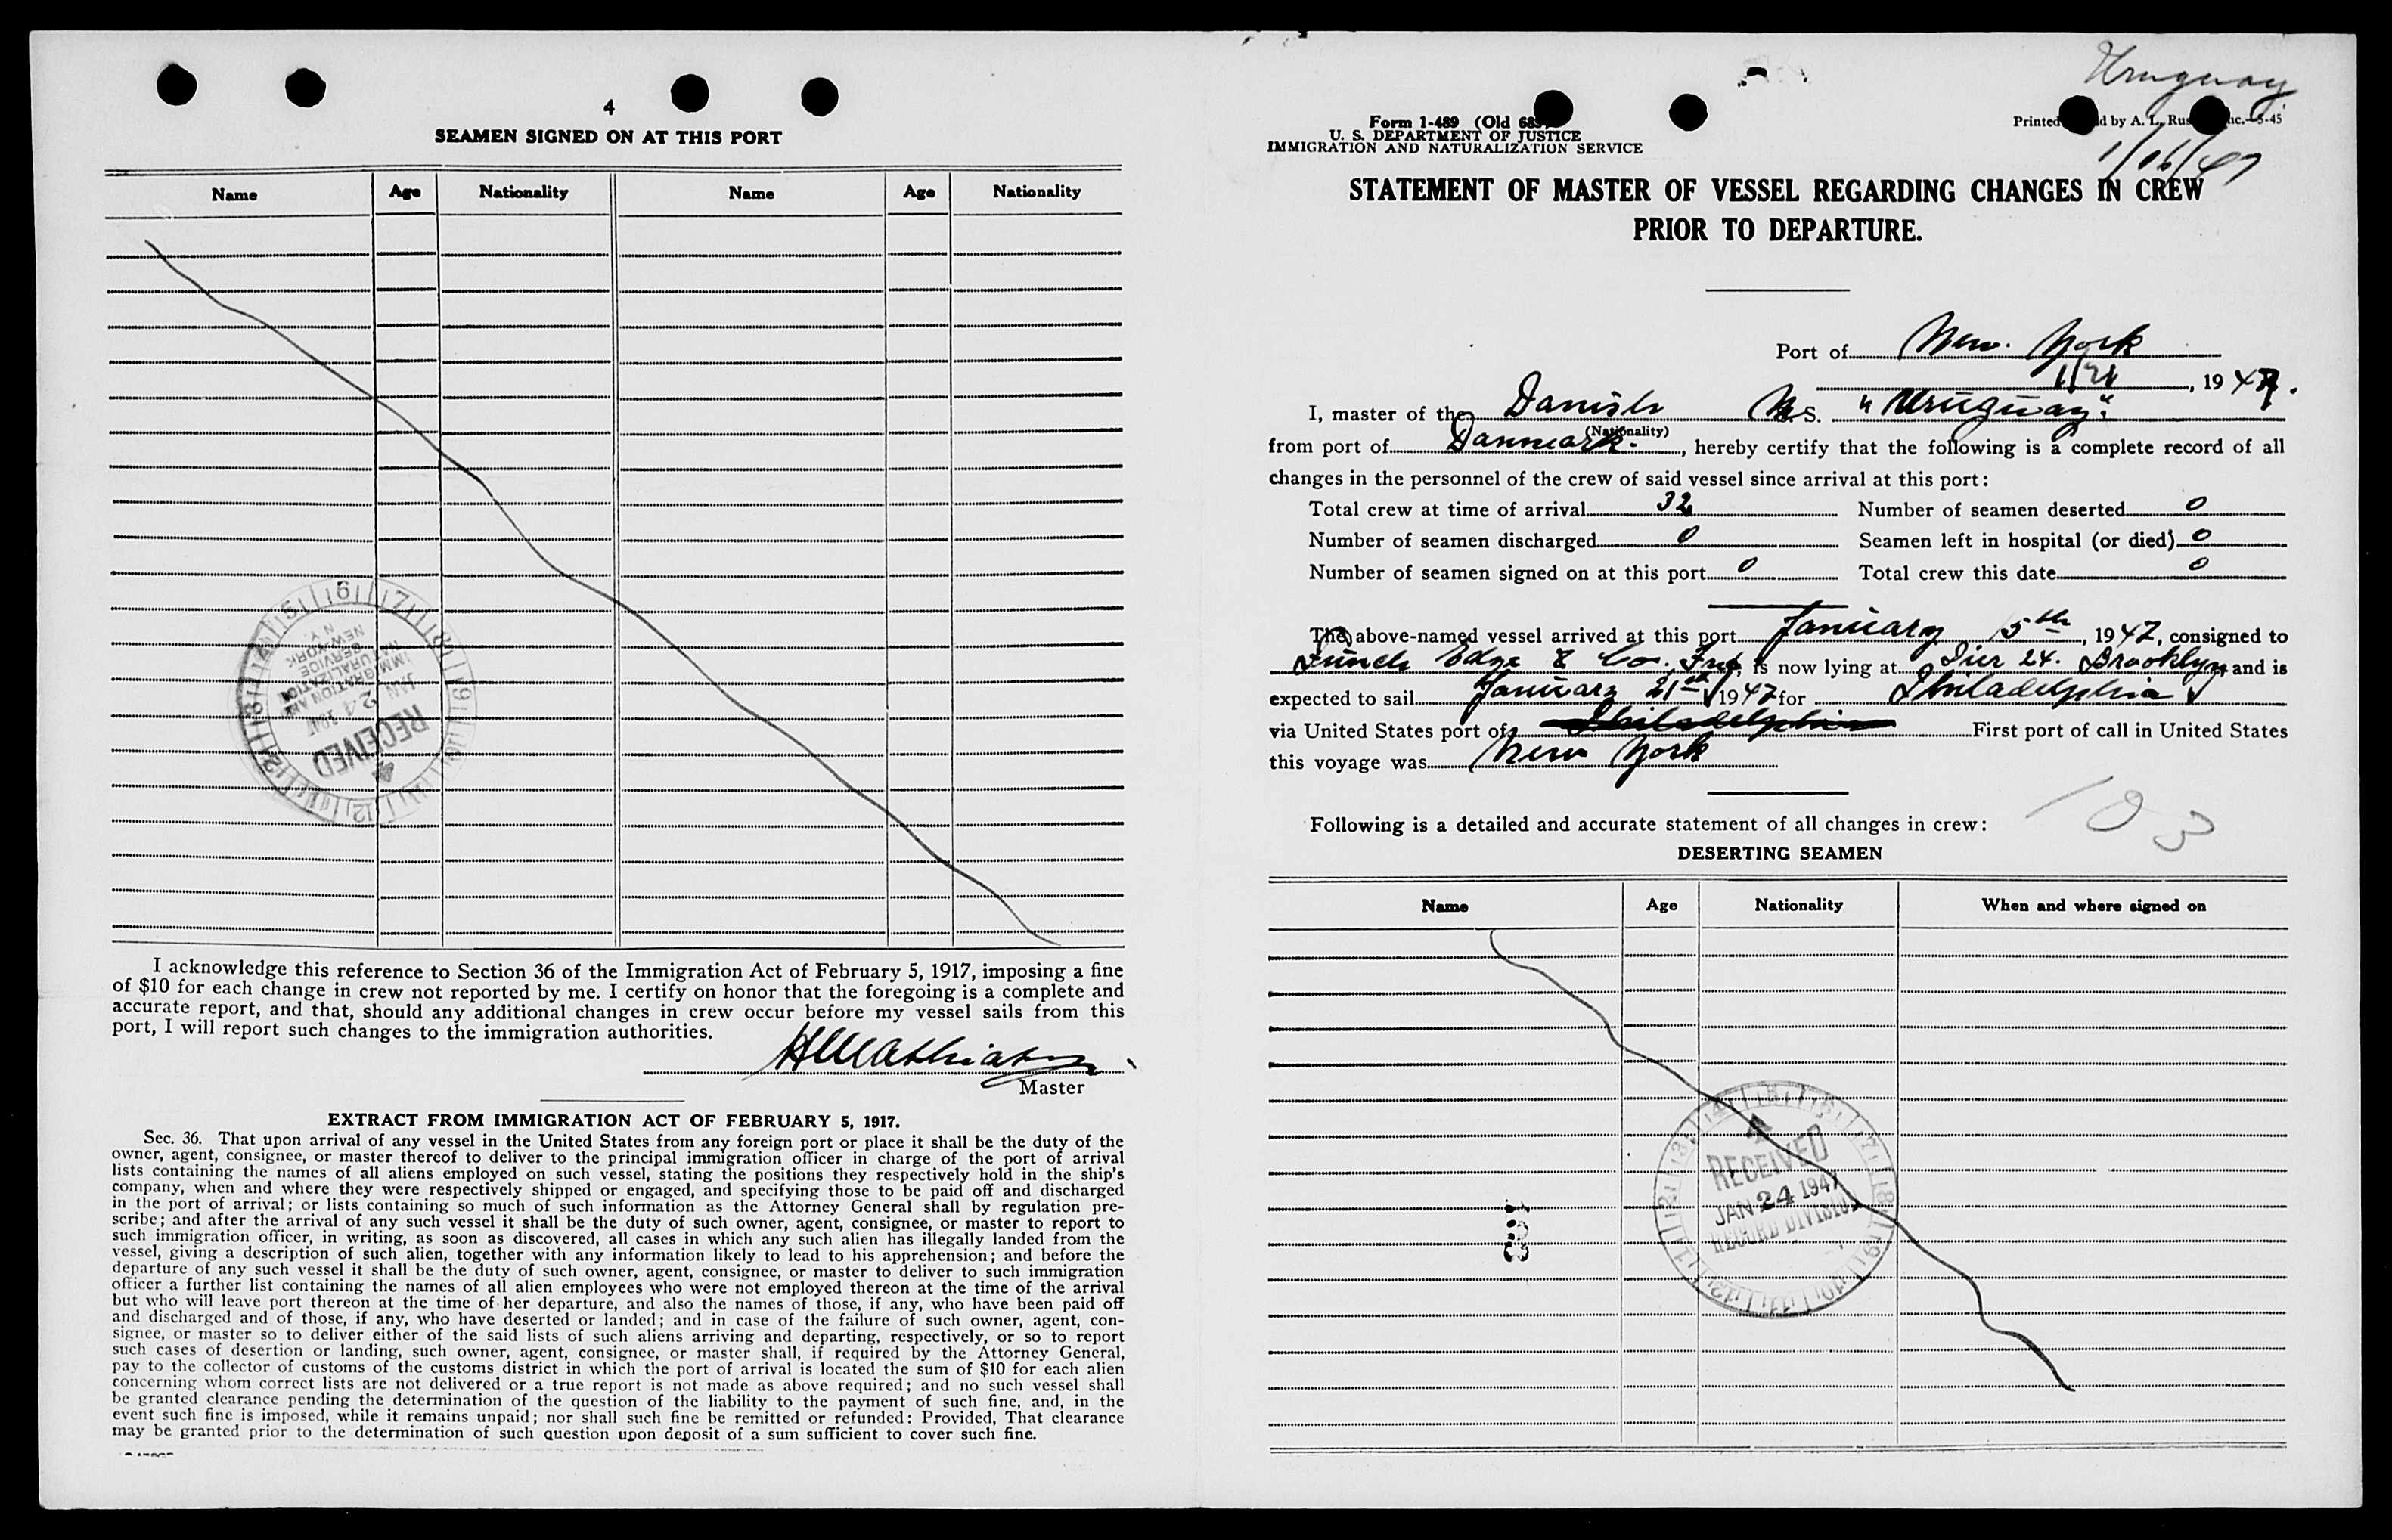 4
SEAMEN SIGNED ON AT THIS PORT
Name Age Nationality Name Age Nationality
RECEIVED
JAN 24 1947
IMMIGRATION AND
NATURALIZATION
SERVICE
NEW YORK
N.Y.
I acknowledge this reference to Section 36 of the Immigration Act of February 5, 1917, imposing a fine
of $10 for each change in crew not reported by me. I certify on honor that the foregoing is a complete and
accurate report, and that, should any additional changes in crew occur before my vessel sails from this
port, I will report such changes to the immigration authorities.
Master
EXTRACT FROM IMMIGRATION ACT OF FEBRUARY 5, 1917.
Sec. 36. That upon arrival of any vessel in the United States from any foreign port or place it shall be the duty of the
owner, agent, consignee, or master thereof to deliver to the principal immigration officer in charge of the port of arrival
lists containing the names of all aliens employed on such vessel, stating the positions they respectively hold in the ship's
company, when and where they were respectively shipped or engaged, and specifying those to be paid off and discharged
in the port of arrival; or lists containing so much of such information as the Attorney General shall by regulation pre-
scribe; and after the arrival of any such vessel it shall be the duty of such owner, agent, consignee, or master to report to
such immigration officer, in writing, as soon as discovered, all cases in which any such alien has illegally landed from the
vessel, giving a description of such alien, together with any information likely to lead to his apprehension; and before the
departure of any such vessel it shall be the duty of such owner, agent, consignee, or master to deliver to such immigration
officer a further list containing the names of all alien employees who were not employed thereon at the time of the arrival
but who will leave port thereon at the time of her departure, and also the names of those, if any, who have been paid off
and discharged and of those, if any, who have deserted or landed; and in case of the failure of such owner, agent, con-
signee, or master so to deliver either of the said lists of such aliens arriving and departing, respectively, or so to report
such cases of desertion or landing, such owner, agent, consignee, or master shall, if required by the Attorney General,
pay to the collector of customs of the customs district in which the port of arrival is located the sum of $10 for each alien
concerning whom correct lists are not delivered or a true report is not made as above required; and no such vessel shall
be granted clearance pending the determination of the question of the liability to the payment of such fine, and, in the
event such fine is imposed, while it remains unpaid; nor shall such fine be remitted or refunded: Provided, That clearance
may be granted prior to the determination of such question upon deposit of a sum sufficient to cover such fine.
Uruguay
1/16/47
Form I-489 (Old 689)
U. S. DEPARTMENT OF JUSTICE
IMMIGRATION AND NATURALIZATION SERVICE
Printed d by A. L. Rus nc.-5-45
STATEMENT OF MASTER OF VESSEL REGARDING CHANGES IN CREW
PRIOR TO DEPARTURE.
Port of New York
1/21, 1947.
I, master of the Danish M.S. "Uruguay"
(Nationality)
from port of Danmark, hereby certify that the following is a complete record of all
changes in the personnel of the crew of said vessel since arrival at this port:
Total crew at time of arrival 32 Number of seamen deserted 0
Number of seamen discharged 0 Seamen left in hospital (or died) 0
Number of seamen signed on at this port 0 Total crew this date 0
The above-named vessel arrived at this port January 15th, 1947, consigned to
Funch Edge & Co. Inc, is now lying at Pier 24. Brooklyn and is
expected to sail January 21st 1947 for Philadelphia
via United States port of Philadelphia First port of call in United States
this voyage was New York
103
Following is a detailed and accurate statement of all changes in crew:
DESERTING SEAMEN
Name Age Nationality When and where signed on
RECEIVED
JAN 24 1947
RECORD DIVISION
103